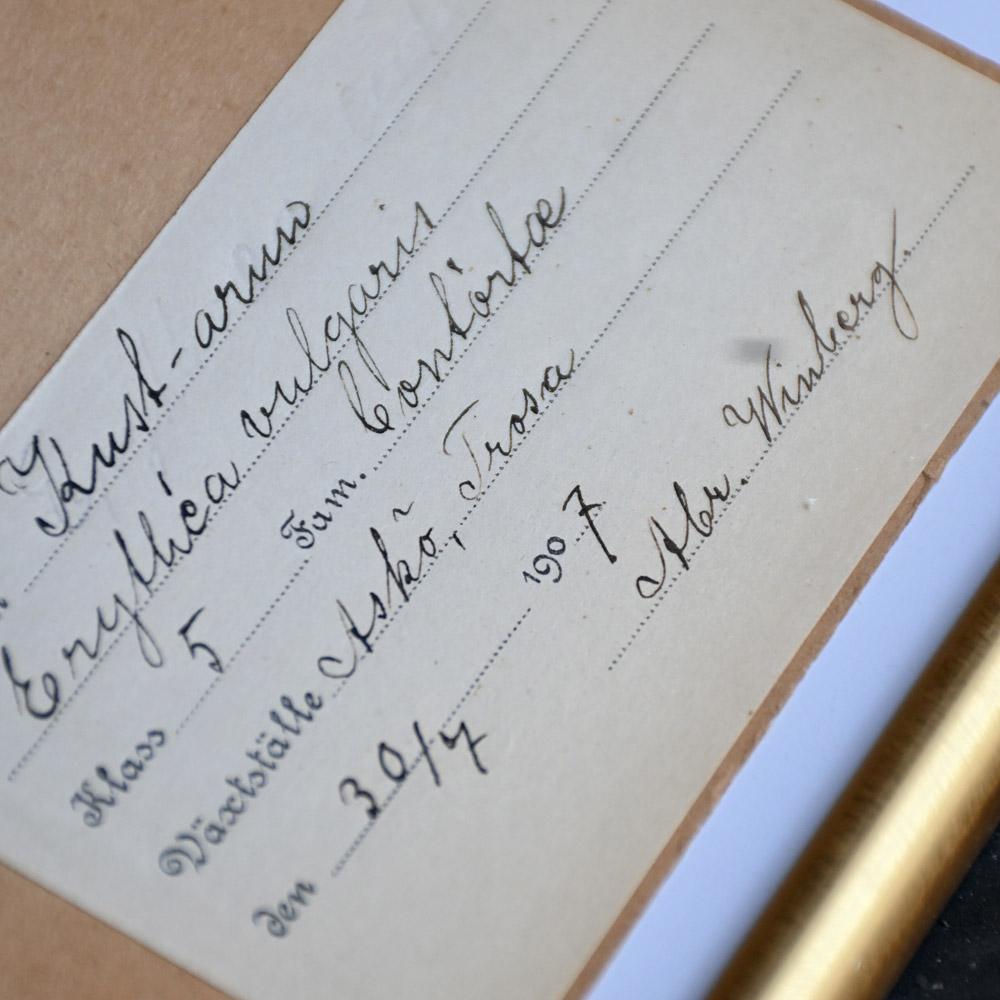 Kust-arun
Erythrea vulgaris
Klass 5 Fam. Contortæ
Växtställe Askö, Trosa
den 30/7 1907
Abr. Winberg.